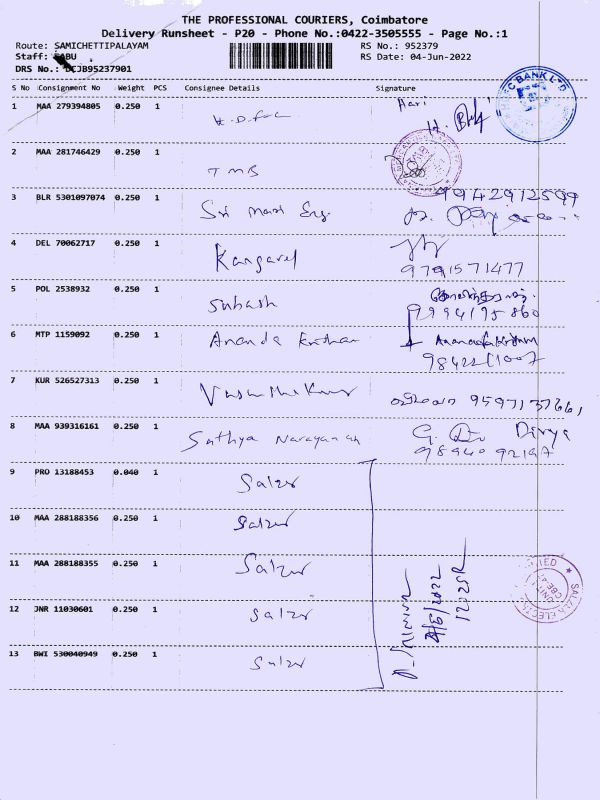 THE PROFESSIONAL COURIERS, Coimbatore
Delivery Runsheet - P20 - Phone No.:0422-3505555 - Page No.:1
Route: SAMICHETTIPALAYAM RS No.: 952379
Staff: BABU RS Date: 04-Jun-2022
DRS No.: DCJB95237901
S No Consignment No Weight PCS Consignee Details Signature
1 MAA 279394805 0.250 1 Hari
BANK LTD
2 MAA 281746429 0.250 1 TMB
TMB
3 BLR 5301097074 0.250 1 Sri Mari Eng. 9942912599
4 DEL 70062717 0.250 1 Kangavel
9791571477
5 POL 2538932 0.250 1 Subash
9994195860
6 MTP 1159092 0.250 1 Ananda Krithan
7 KUR 526527313 0.250 1 Vasanthakumar
8 MAA 939316161 0.250 1 Sathya Narayanan G. Divya
9894092197
9 PRO 13188453 0.040 1 Salzer
10 MAA 288188356 0.250 1 Salzer
11 MAA 288188355 0.250 1 Salzer
12 JNR 11030601 0.250 1 Salzer
13 BWI 530040949 0.250 1 Salzer
4/6/2022
SALZER ELECT
UNIT-I